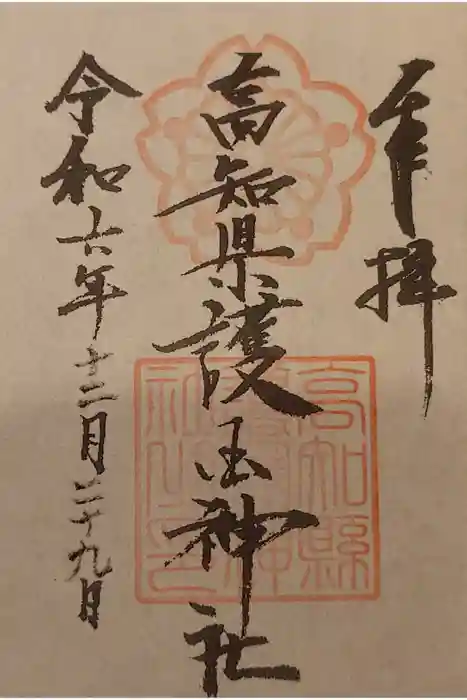 奉拝
高知県護国神社
令和六年十二月二十九日
高知縣
社之印